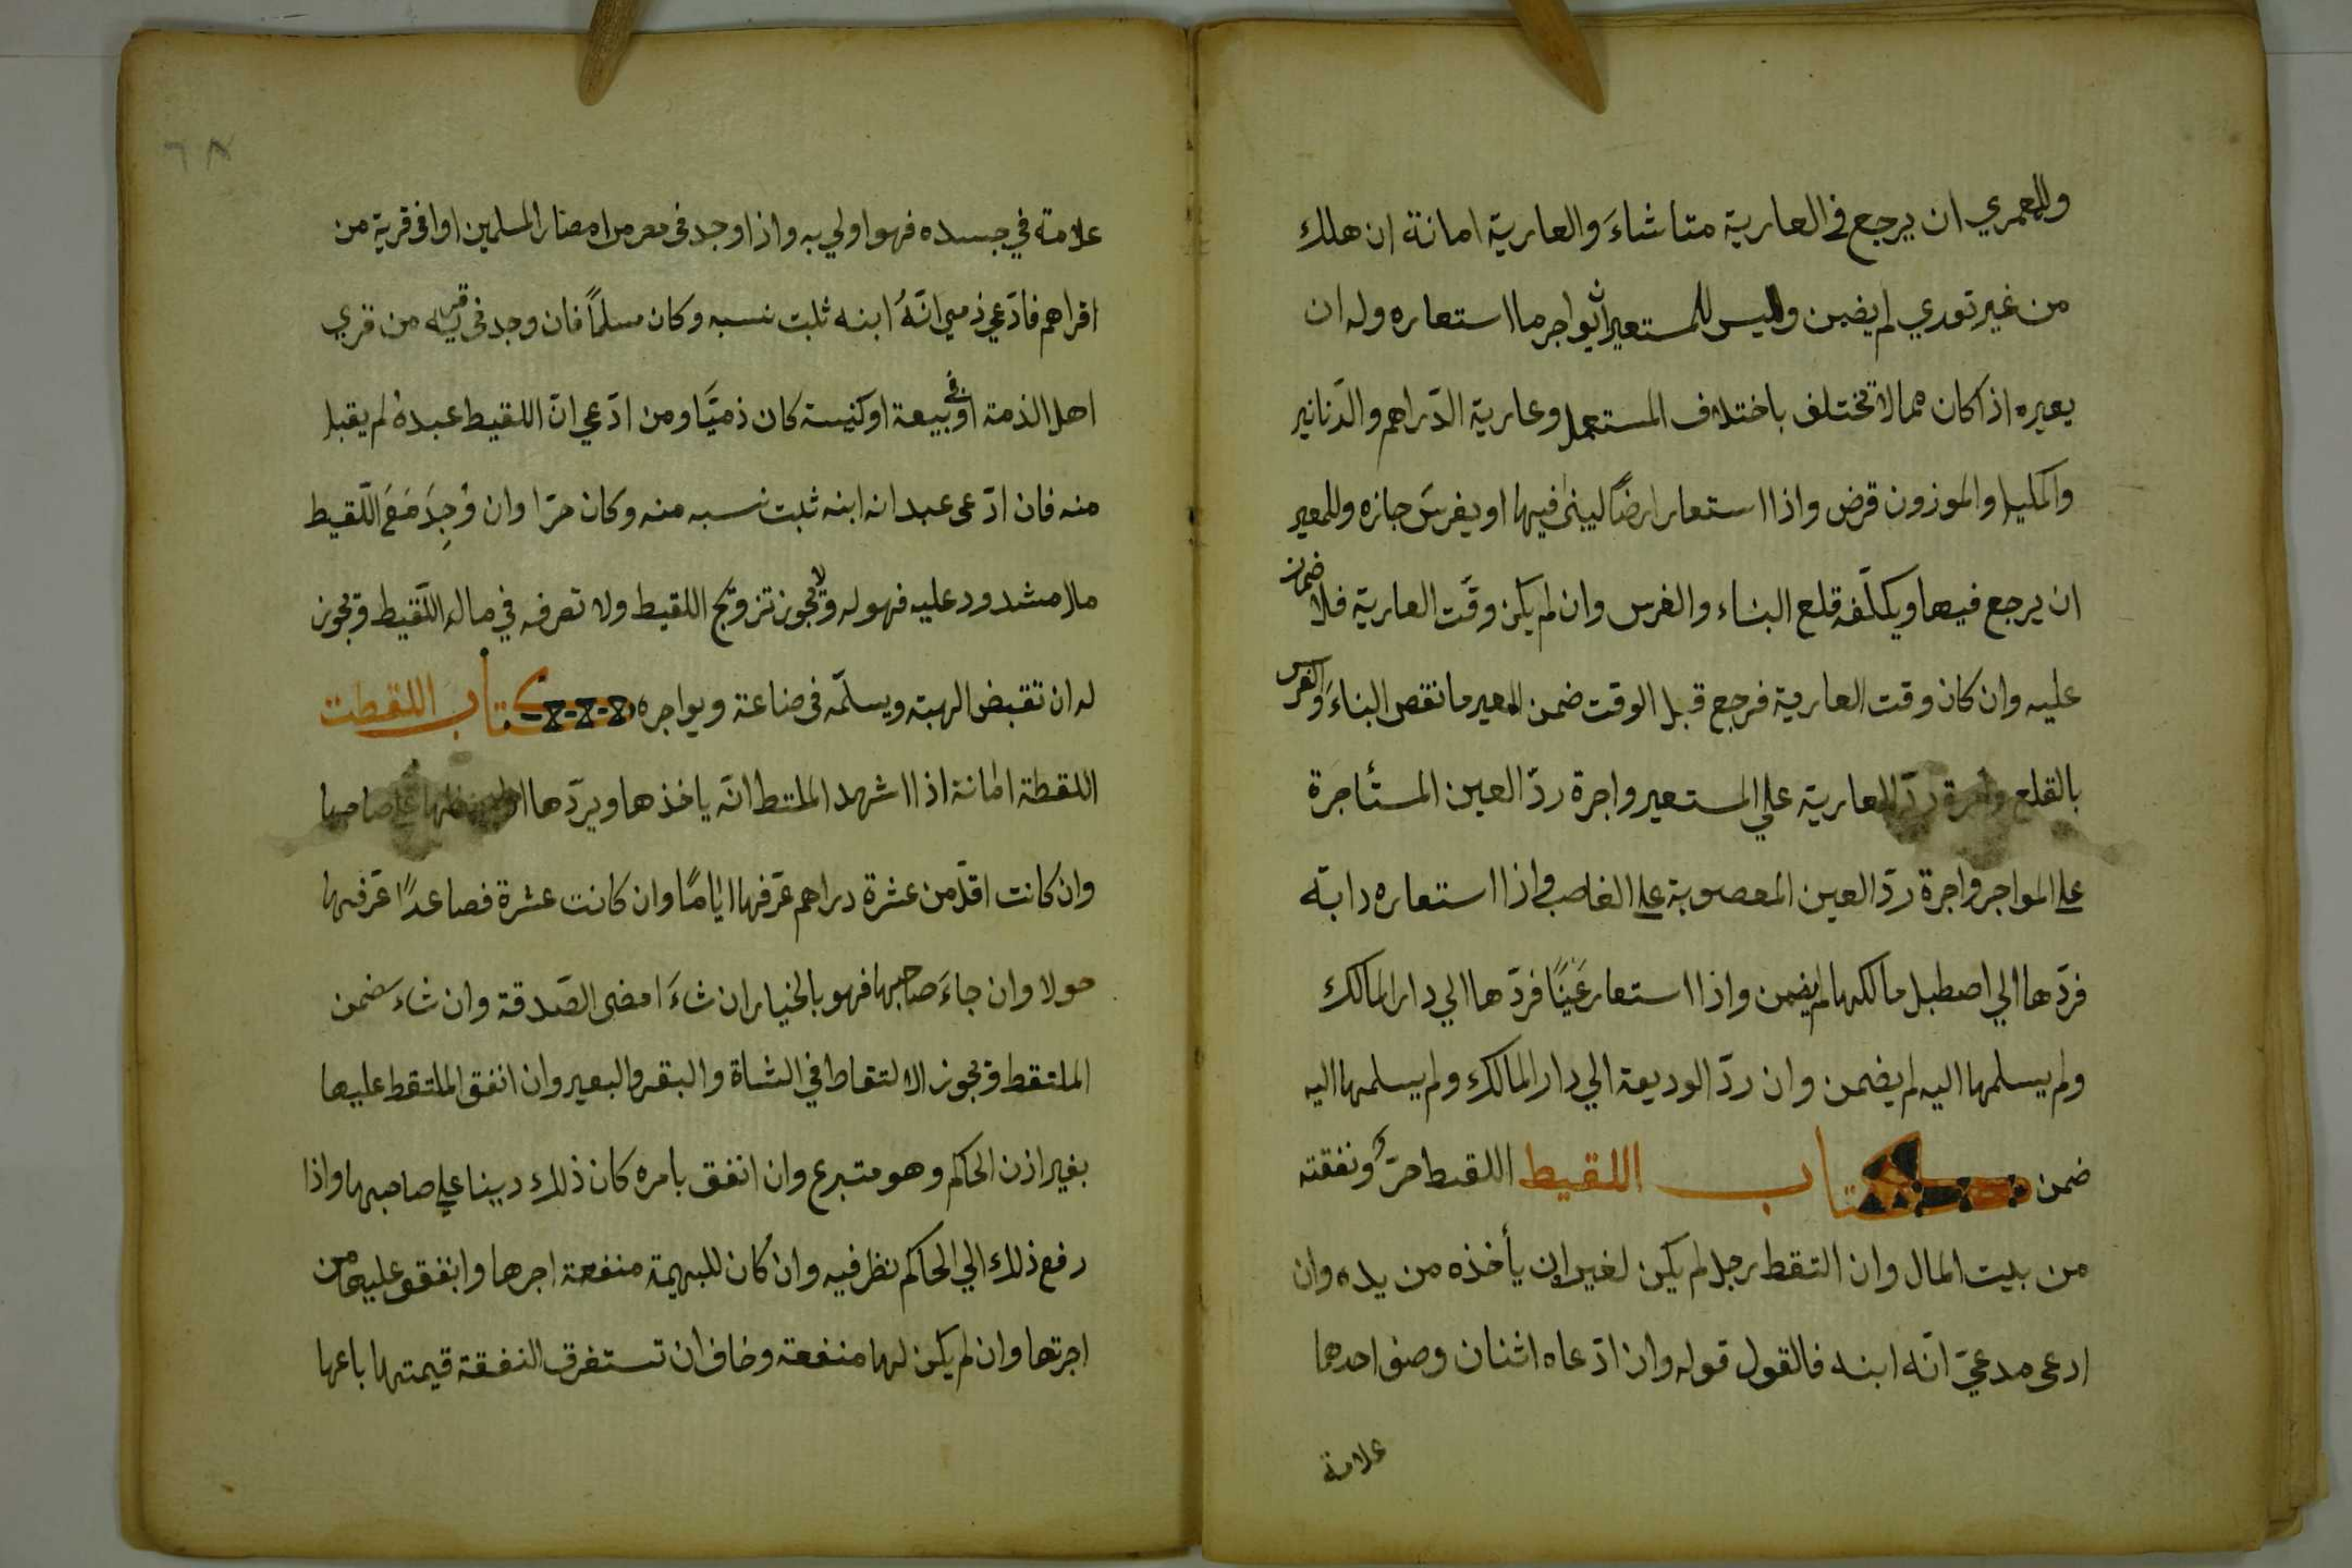 وللعمري ان يرجع في العارية متا شاءَ والعارية امانة ان هلك
من غير تعدي لم يضمن وليس للمستعير ان يواجر ما استعاره وله ان
يعيره اذا كان مما لا تختلف باختلاف المستعمل وعارية الدّراهم والدّنانير
والمكيل والموزون قرض واذا استعار ارضًا ليبنى فيها او يغرسَ جازه وللمعير
ان يرجع فيها ويكلّفه قلع البناء والغرس وان لم يكن وقّت العارية فلا ضمان
عليه وان كان وقت العارية فرجع قبل الوقت ضمن المعير ما نقص البناءَ والغرس
بالقلع واجرة ردّ العارية علي المستعير واجرة ردّ العين المستأجَرة
على المواجر واجرة ردّ العين المغصوبة على الغاصب واذا استعاره دابّه
فردّها الي اصطبل مالكها لم يضمن واذا استعار عَينًا فردّها الي دار المالك
ولم يسلمها اليه لم يضمن وان ردّ الوديعة الي دار المالك ولم يسلمها اليه
ضمن كتاب اللقيط اللقيط حرّ ونفقته
من بيت المال وان التقط رجل لم يكن لغيره ان يأخذه من يده وان
ادعى مدعيّ انّه ابنه فالقول قوله وان ادّعاه اثنان وصف احدهما
علامة
٦٨
علامة في جسده فهو اولي به واذا وجد في مصر من امصار المسلمين او في قرية من
اقراهم فادّعي ذمي انّهُ ابنه ثلبت نسبه وكان مسلمًا فان وجد في قرية من قري
اهل الذمة او في بيعة او كنيسة كان ذميّا ومن ادّعي انّ اللقيط عبدهُ لم يقبل
منه فان ادّعى عبد انه ابنه ثبت نسبه منه وكان حرّا وان وُجِدَ مَعَ اللّقيط
مال مشدود عليه فهو له ولا يجوز تزويج اللقيط ولا تصرفه في مال اللّقيط ويجوز
له ان تقبض الهبته ويسلّمه في صناعة ويواجره كتاب اللقطت
اللقطة امانة اذا اشهد الملتط انّه ياخذها ويردّها صاحبها
وان كانت اقلّ من عشرة دراهم عرّفها ايّامًا وان كانت عشرة فصاعدًا عرّفها
حولا وان جاءَ صاحبها فهو بالخيار ان شاءَ امضى الصّدقة وان شاء ضمن
الملتقط ويجوز الالتقاط في الشاة والبقر والبعير وان انفق الملتقط عليها
بغير اذن الحاكم وهو متبرع وان انفق بامره كان ذلك دينا علي صاحبها واذا
رفع ذلك الي الحاكم نظر فيه وان كان للبهيمة منفعة اجرها وانفقو عليها من
اجرتها وان لم يكن لها منفعة وخاف ان تستغرق النفقة قيمتها باعها